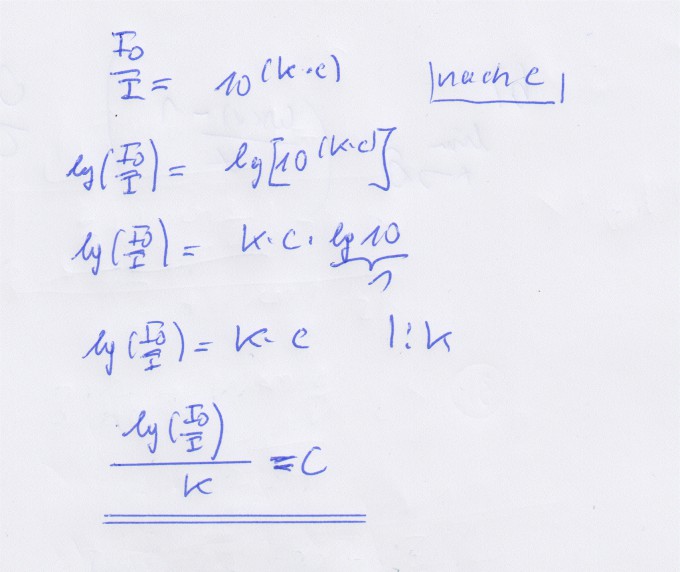 I₀/I = 10^(k·c) |nach c|
lg(I₀/I) = lg[10^(k·c)]
lg(I₀/I) = k·c·lg 10
1
lg(I₀/I) = k·c |:k
lg(I₀/I)/k = c